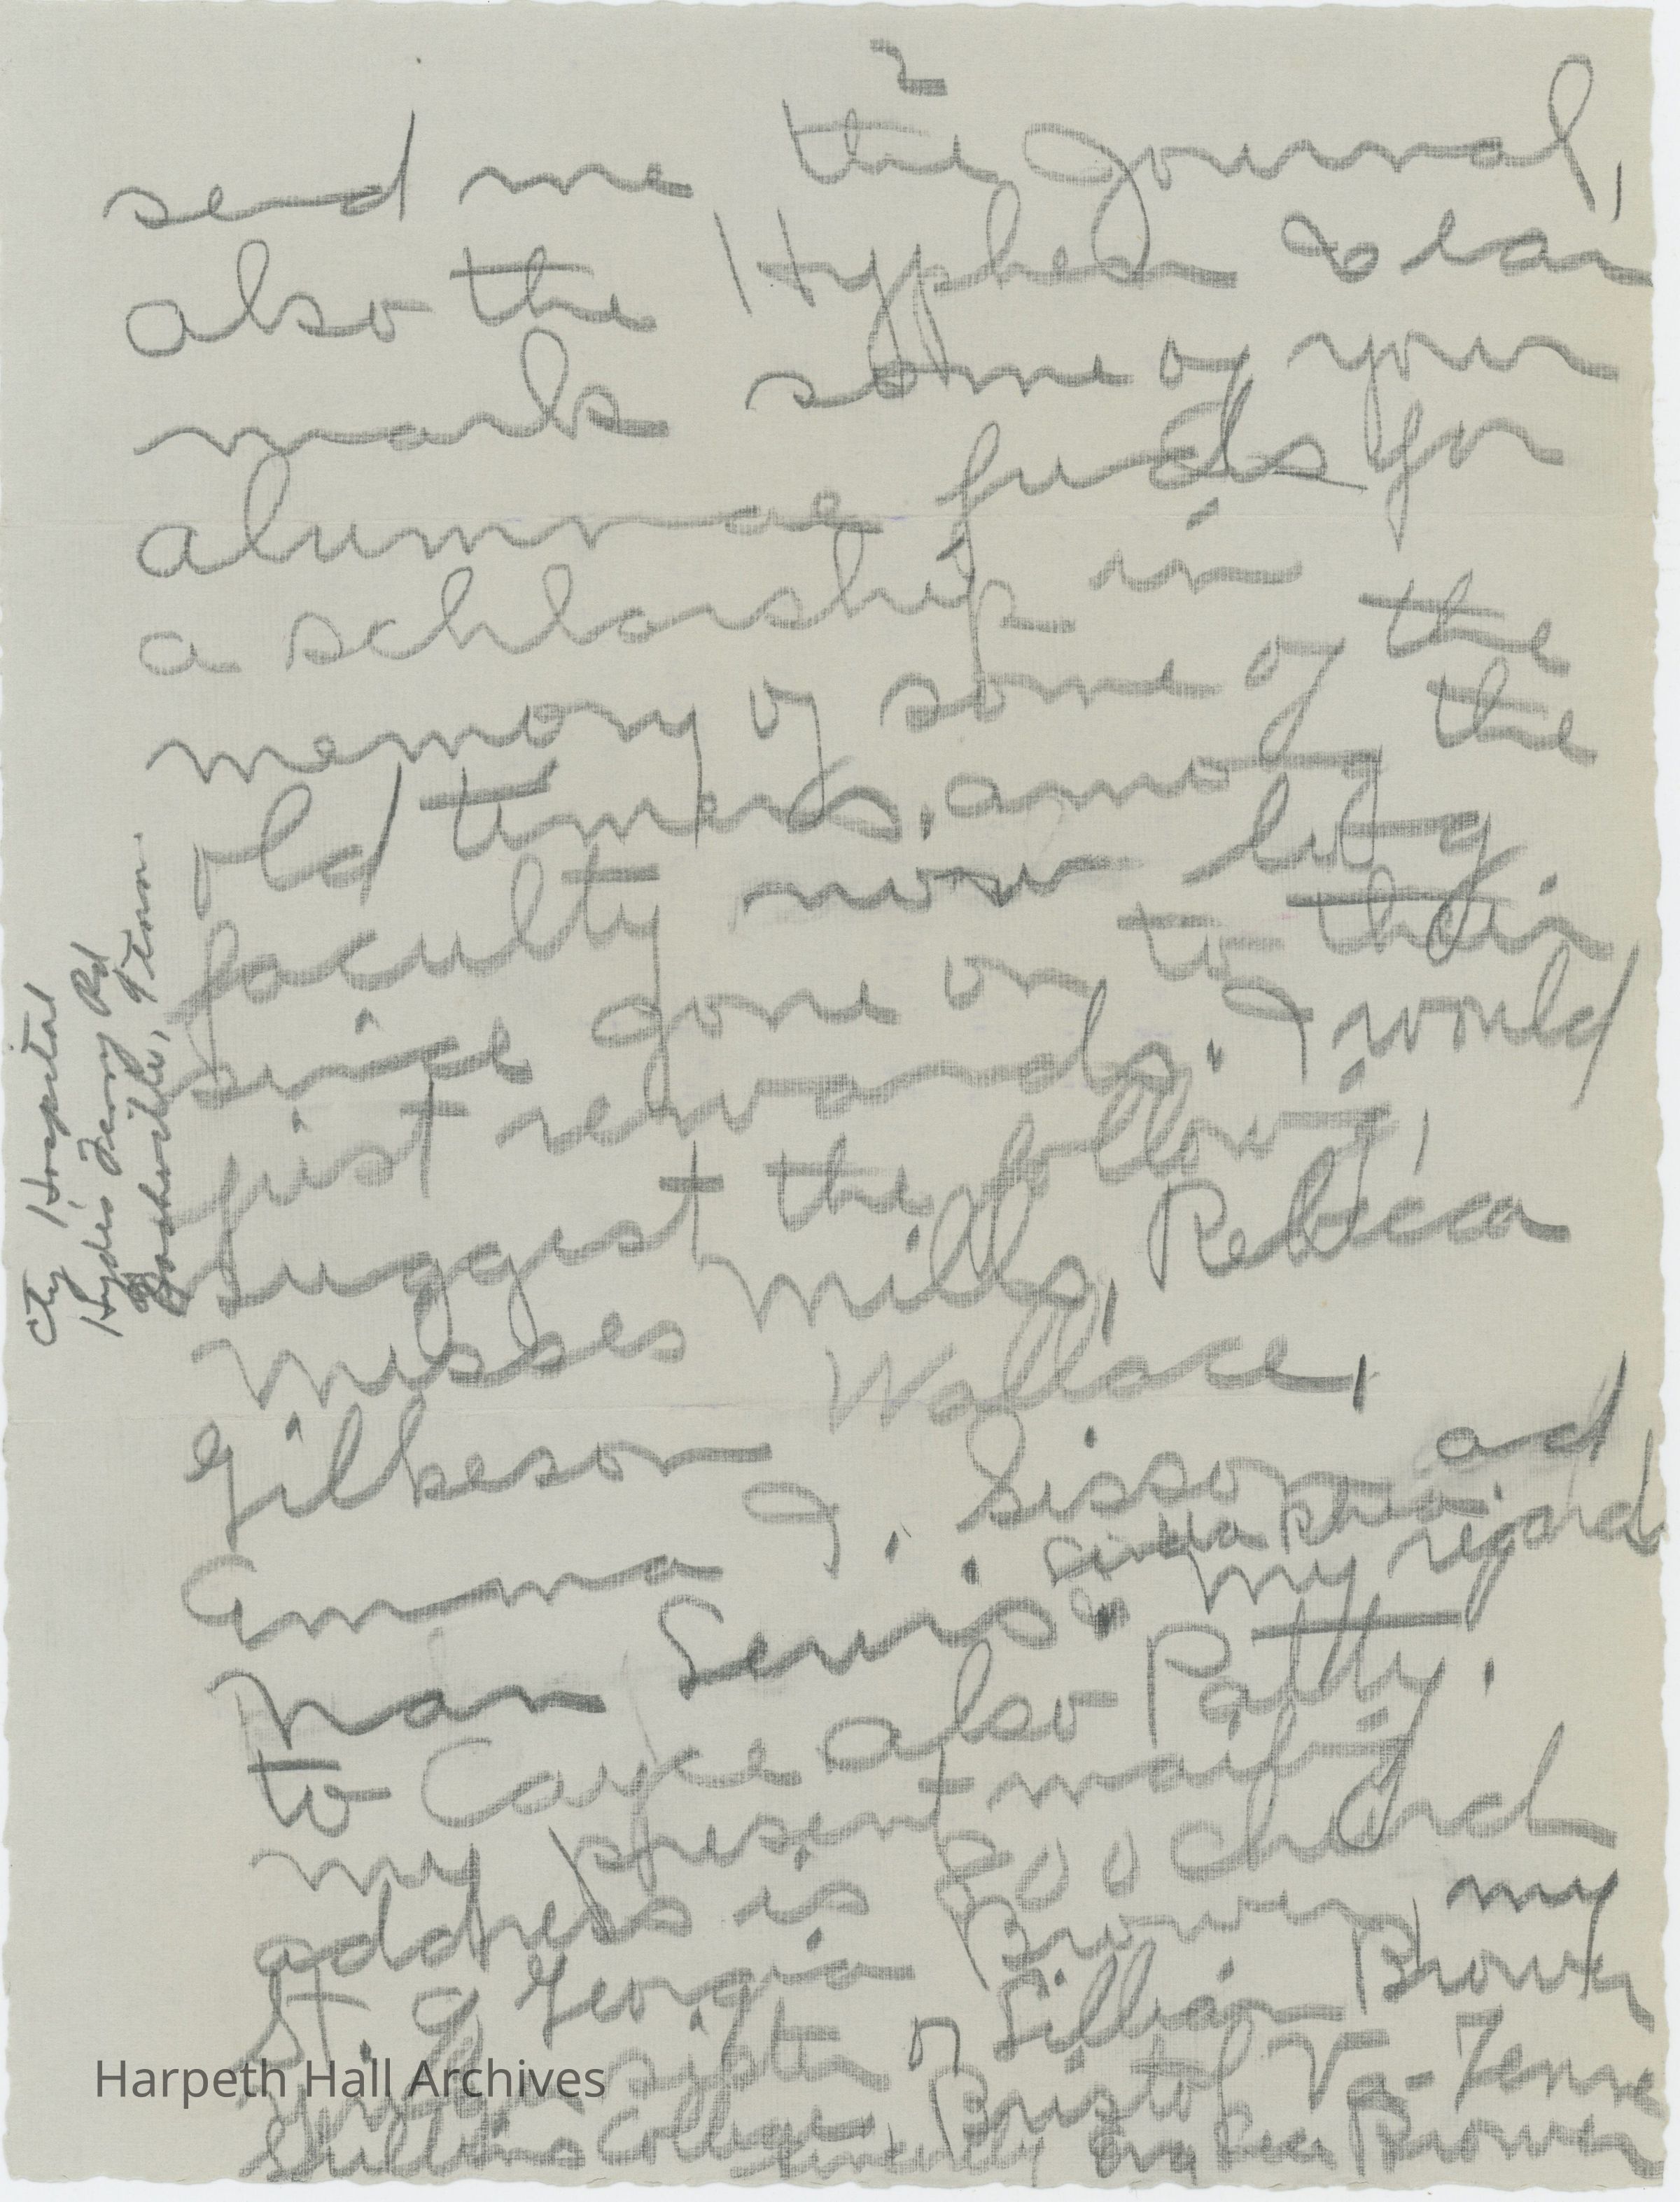 2
send me the Journal,
also the Hyphen & ear
mark some of your
alumnae funds for
a schlarship in
memory of some of the
old timers, among the
faculty now living
since gone on to their
just rewards. I would
suggest the following,
Misses Mills, Rebecca
Gilkeson Wallace,
Emma I. Sisson and
Nan Lewis. my regards
to Cayce also Patty.
my present mailing
address is 200 Church
St. Georgia Brower my
sister of Lillian Brower
Sullins College, Bristol Va-Tenne
Sincerely Brower
City Hospital
Hydes Ferry Rd
Nashville, Tenn.
Harpeth Hall Archives